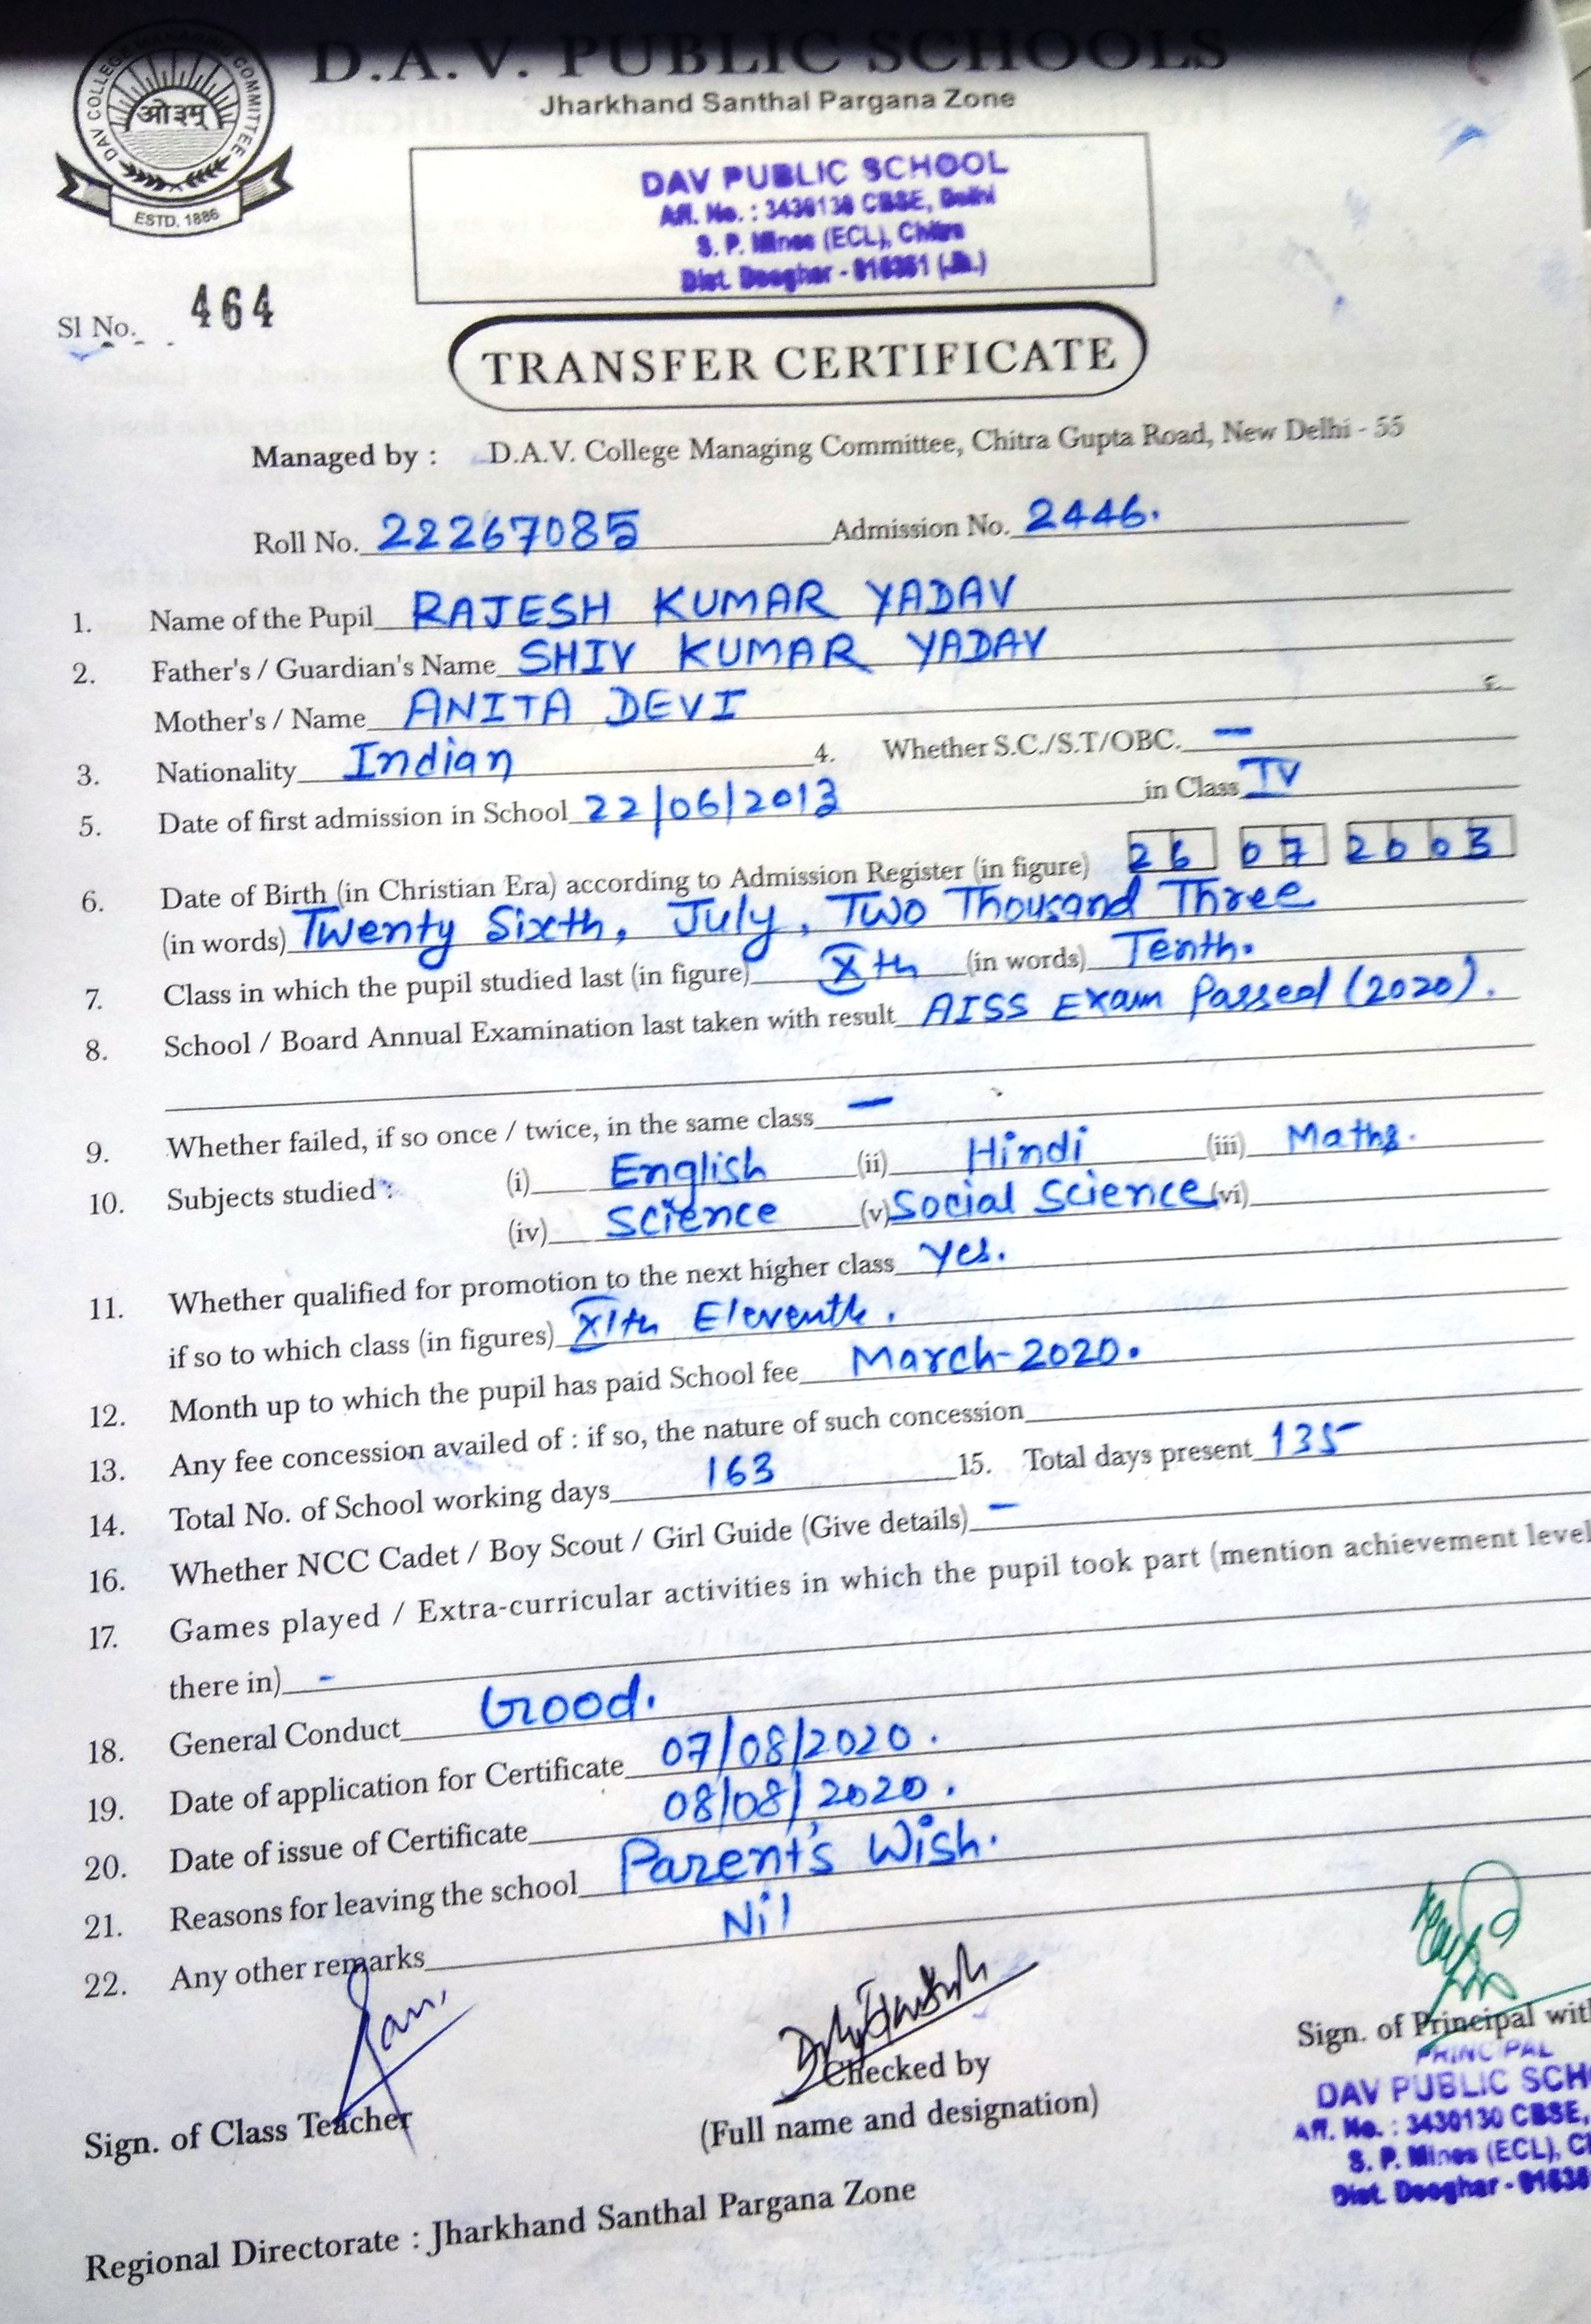 D.A.V. PUBLIC SCHOOLS
Jharkhand Santhal Pargana Zone
DAV COLLEGE MANAGING COMMITTEE
ओ३म्
ESTD. 1886
DAV PUBLIC SCHOOL
Aff. No. : 3430130 CBSE, Delhi
S. P. Mines (ECL), Chitra
Dist. Deoghar - 815351 (Jh.)
Sl No. 464
TRANSFER CERTIFICATE
Managed by : D.A.V. College Managing Committee, Chitra Gupta Road, New Delhi - 55
Roll No. 22267085 Admission No. 2446.
1. Name of the Pupil RAJESH KUMAR YADAV
2. Father's / Guardian's Name SHIV KUMAR YADAV
Mother's / Name ANITA DEVI
3. Nationality Indian 4. Whether S.C./S.T/OBC. —
5. Date of first admission in School 22/06/2013 in Class IV
6. Date of Birth (in Christian Era) according to Admission Register (in figure) 26 07 2003
(in words) Twenty Sixth, July, Two Thousand Three
7. Class in which the pupil studied last (in figure) Xth (in words) Tenth.
8. School / Board Annual Examination last taken with result AISS Exam Passed (2020).
9. Whether failed, if so once / twice, in the same class —
10. Subjects studied : (i) English (ii) Hindi (iii) Maths.
(iv) Science (v) Social Science (vi)
11. Whether qualified for promotion to the next higher class yes.
if so to which class (in figures) XIth Eleventh.
12. Month up to which the pupil has paid School fee March-2020.
13. Any fee concession availed of : if so, the nature of such concession
14. Total No. of School working days 163 15. Total days present 135
16. Whether NCC Cadet / Boy Scout / Girl Guide (Give details) —
17. Games played / Extra-curricular activities in which the pupil took part (mention achievement level
there in) -
18. General Conduct Good.
19. Date of application for Certificate 07/08/2020.
20. Date of issue of Certificate 08/08/2020.
21. Reasons for leaving the school Parent's Wish.
22. Any other remarks Nil
Sign. of Class Teacher
Checked by
(Full name and designation)
Sign. of Principal with
PRINCIPAL
DAV PUBLIC SCHO
Aff. No. : 3430130 CBSE,
S. P. Mines (ECL), C
Dist. Deoghar -
Regional Directorate : Jharkhand Santhal Pargana Zone